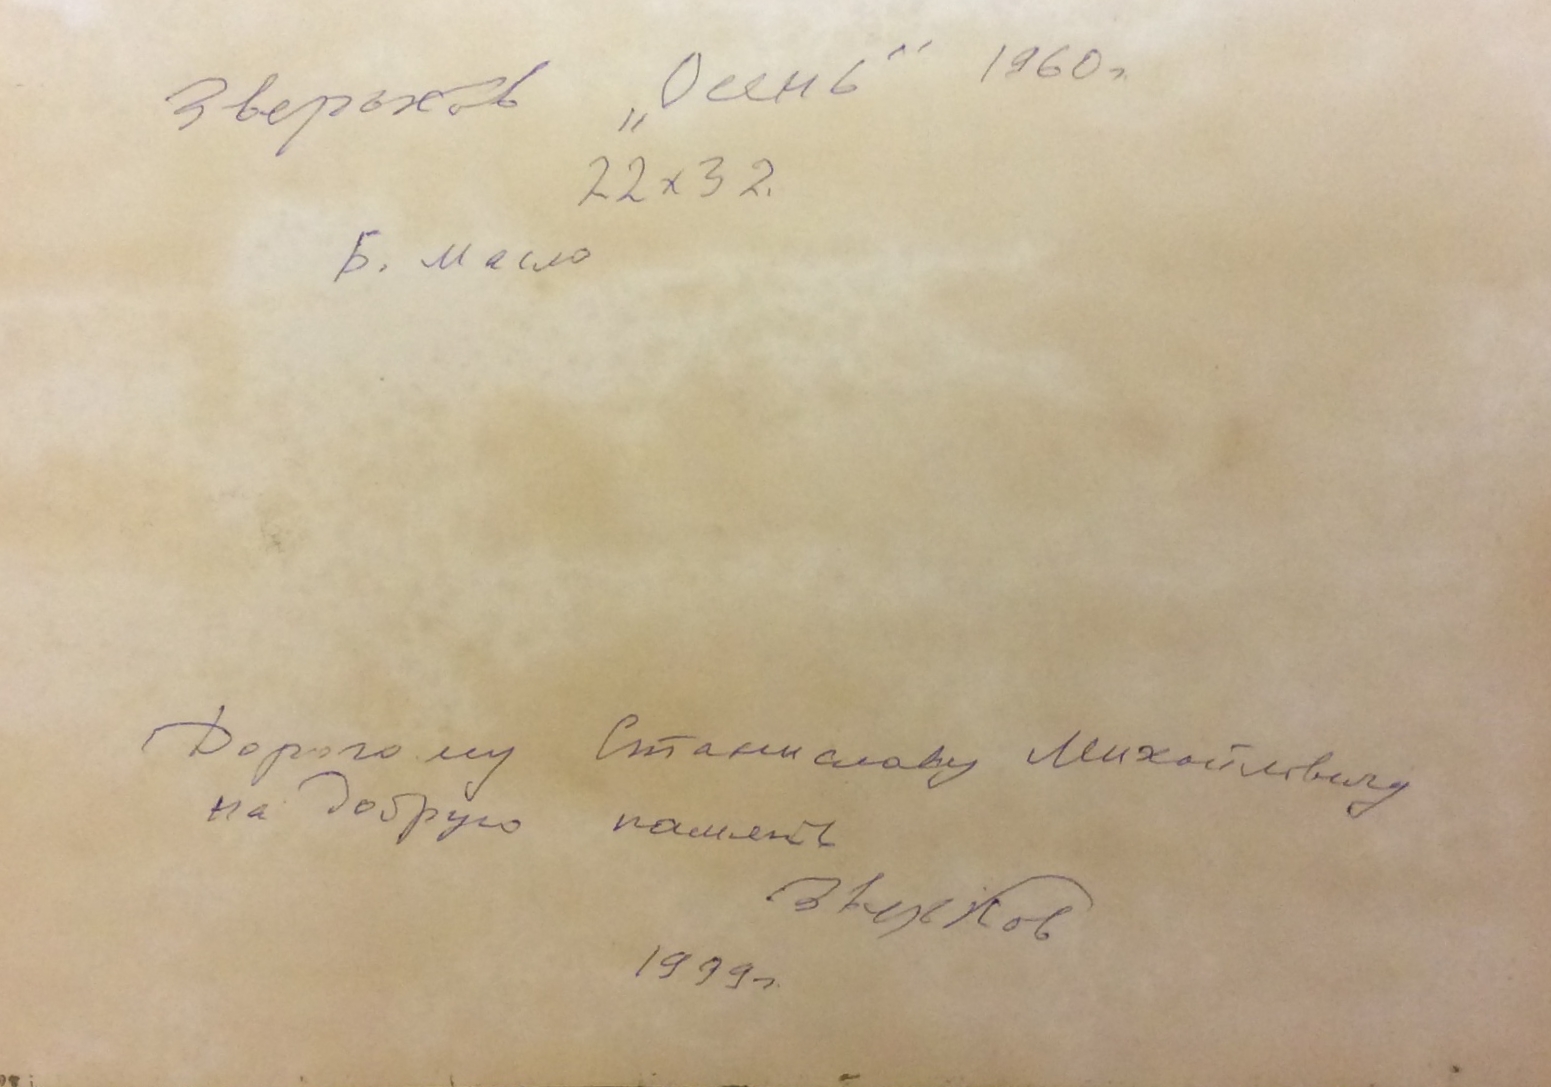 Зверьков „Осень“ 1960г.
22х32.
Б. масло
Дорогому Станиславу Михайловичу
на добрую память
Зверьков
1999г.